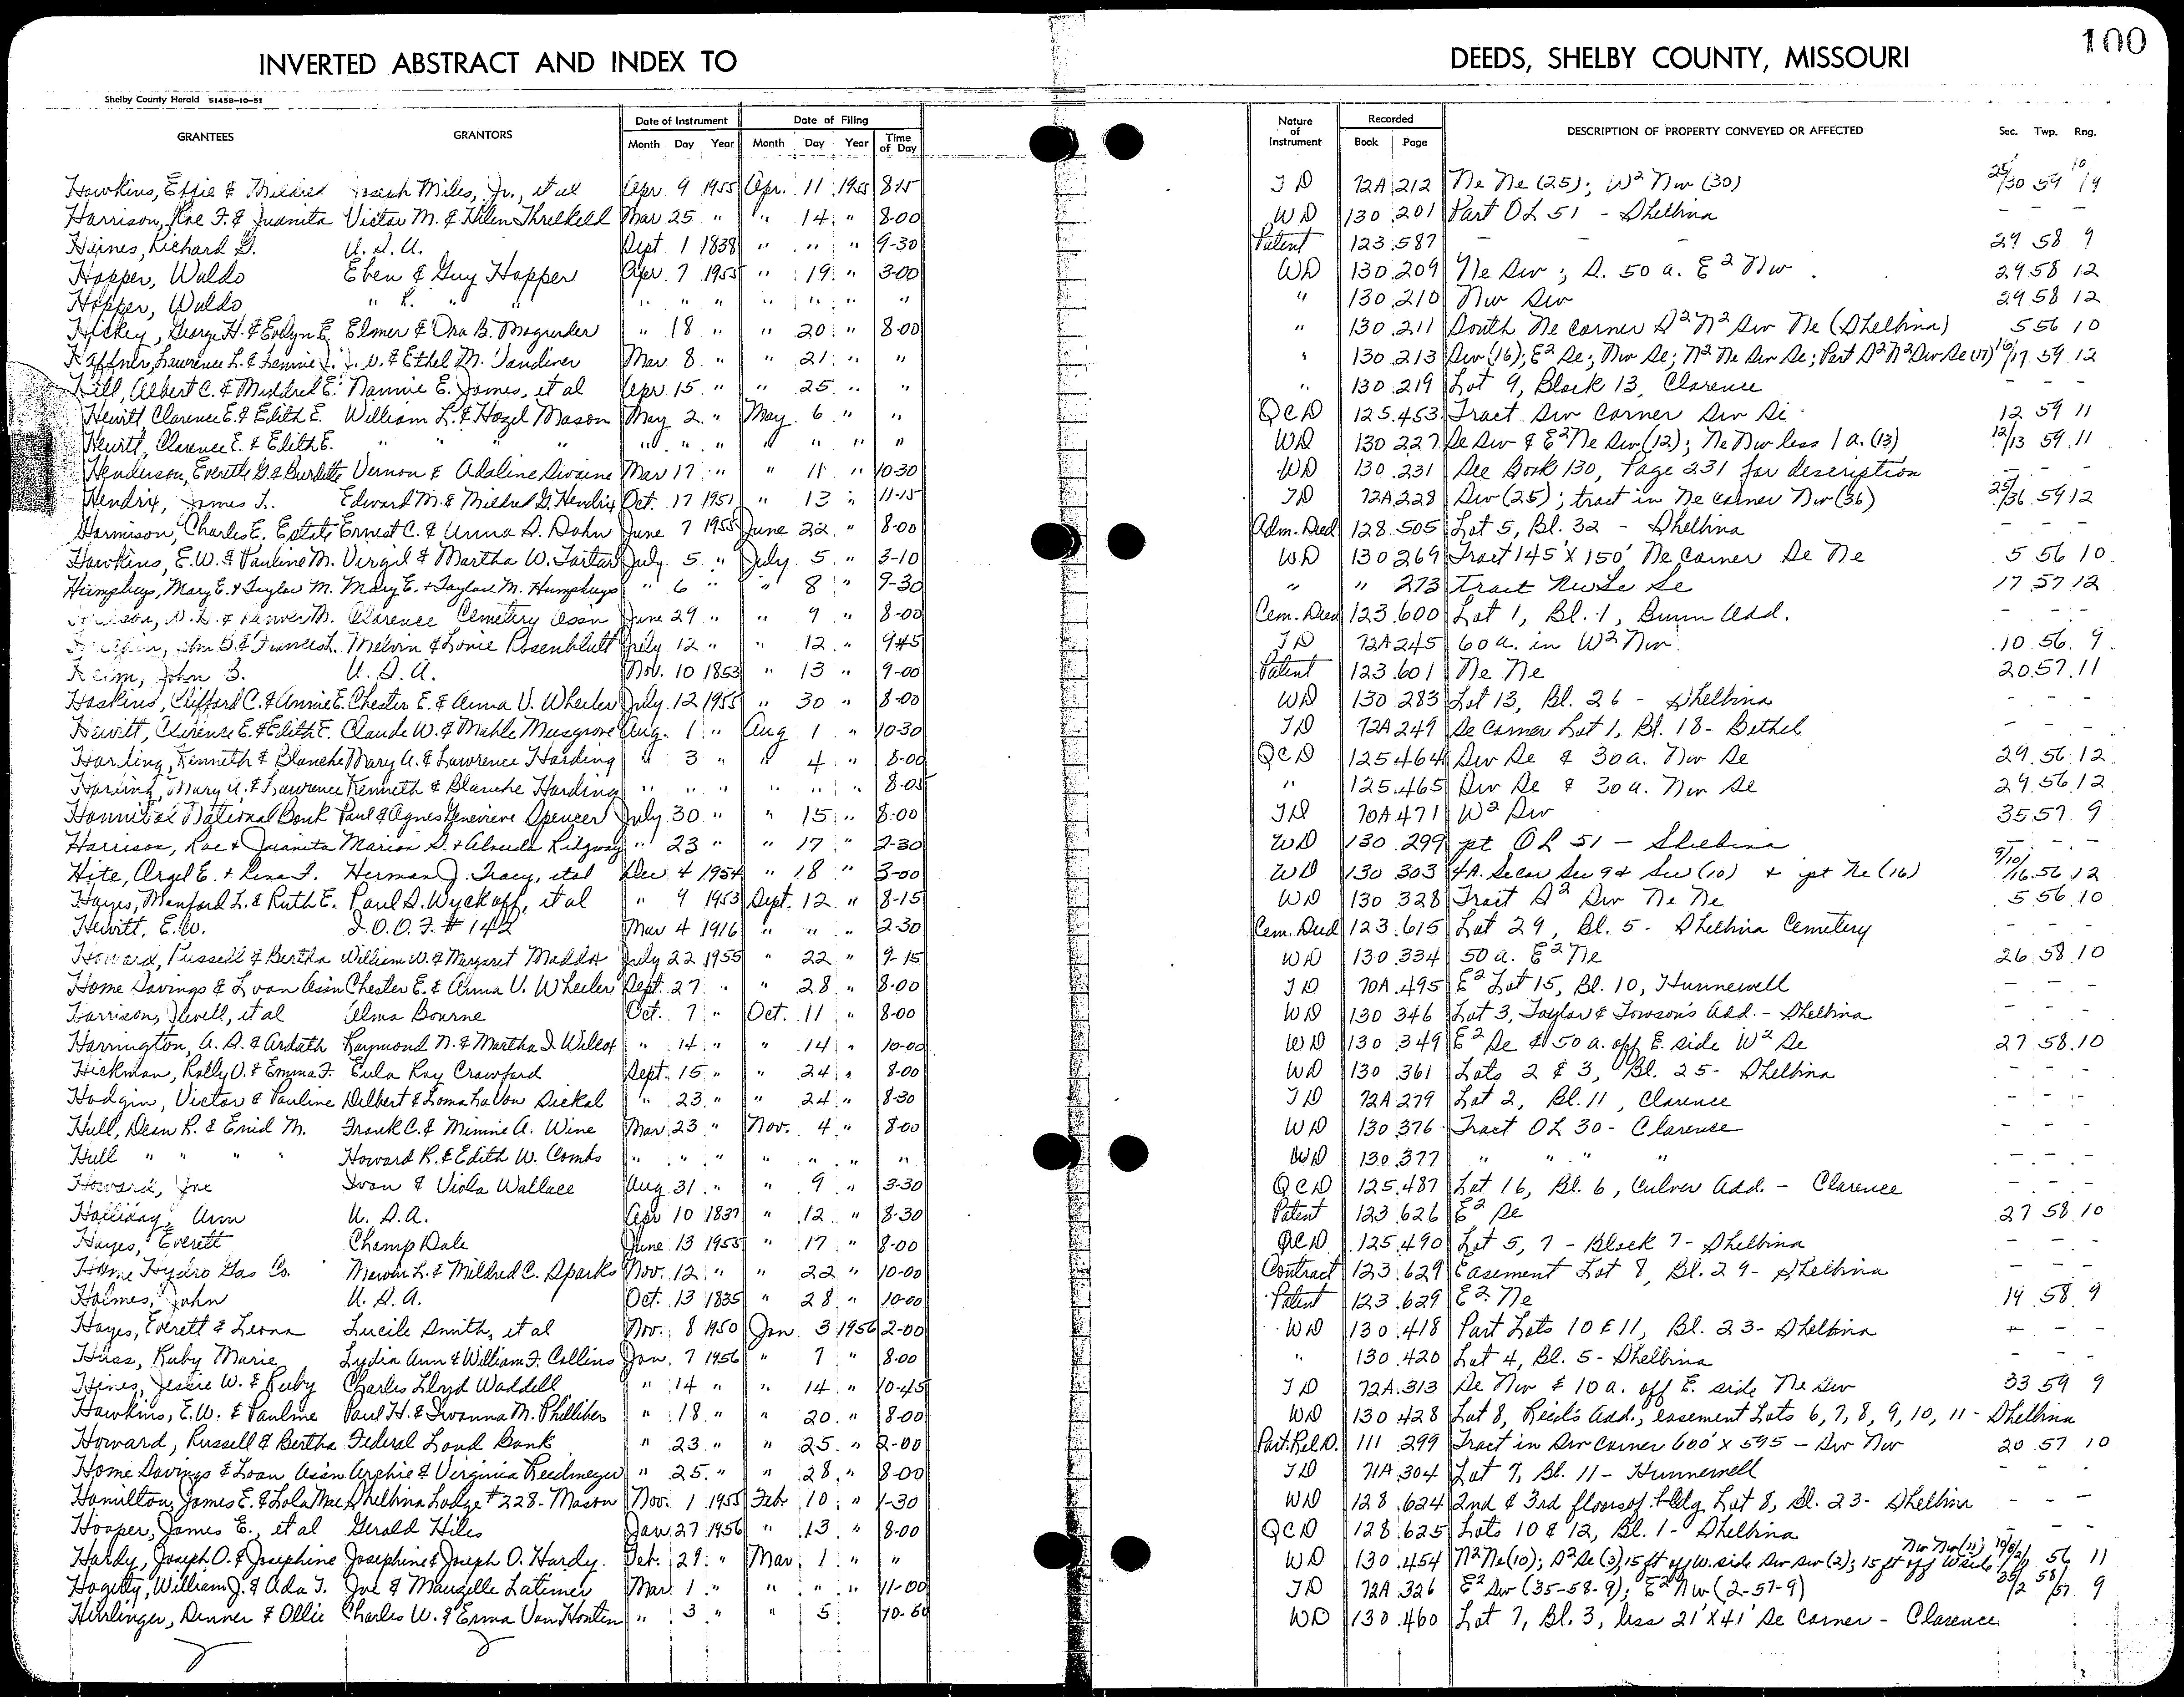 100
INVERTED ABSTRACT AND INDEX TO DEEDS, SHELBY COUNTY, MISSOURI
Shelby County Herald 51458-10-51
GRANTEES GRANTORS Date of Instrument Date of Filing Nature of Instrument Recorded DESCRIPTION OF PROPERTY CONVEYED OR AFFECTED Sec. Twp. Rng.
Month Day Year Month Day Year Time of Day Book Page
Hawkins, Effie & Mildred Joseph Miles, Jr., et al Apr. 9 1955 Apr. 11 1955 8-15 TD 72A 212 Ne Ne (25); W2 Nw (30) 25/30 59 10/9
Harrison, Roe F. & Juanita Victor M. & Helen Threlkeld Mar 25 " " 14 " 8-00 WD 130 201 Part OL 51 - Shelbina - -
Haines, Richard G. U.S.A. Sept. 1 1838 " " " 9-30 Patent 123 587 - - 29 58 9
Hopper, Waldo Eben & Guy Hopper Apr. 7 1955 " 19 " 3-00 WD 130 209 Ne Sw; S. 50 a. E2 Nw 29 58 12
Hopper, Waldo " & " " " " " " " " " " 130 210 Nw Sw 29 58 12
Hickey, George H. & Evelyn E. Elmer & Ora B. Magruder " 18 " " 20 " 8-00 " 130 211 South Ne corner S2 N2 Sw Ne (Shelbina) 5 56 10
Haffner, Lawrence L. & & Ethel M. Vandiver Mar. 8 " " 21 " " " 130 213 Sw (16); E2 Se; Nw Se; N2 Ne Sw Se; Part S2 N2 Sw Se (17) 16/17 59 12
Hill, Albert C. & Mildred E. Nannie E. Jones, et al Apr 15 " " 25 " " " 130 219 Lot 9, Block 13, Clarence - - -
Hewitt, Clarence E. & Edith E. William L. & Hazel Mason May 2 " May 6 " " QCD 125 453 Tract Sw Corner Sw Se 12 59 11
Hewitt, Clarence E. & Edith E. " " " " " " " " " " " WD 130 227 Se Sw & E2 Ne Sw (12); Ne Nw less 1 a. (13) 12/13 59 11
Henderson, Everette G. & Burdette Vernon & Adaline Divine Mar 17 " " 11 " 10-30 WD 130 231 See Book 130, Page 231 for description - - -
Hendrix, James T. Edward M. & Mildred G. Hendrix Oct. 17 1951 " 13 " 11-15 TD 72A 228 Sw (25); tract in Ne corner Nw (36) 25/36 59 12
Harmison, Charles E. Estate Ernest C. & Anna S. Dahn June 7 1955 June 22 " 8-00 Adm. Deed 128 505 Lot 5, Bl. 32 - Shelbina - - -
Hawkins, E.W. & Pauline M. Virgil & Martha W. Tarter July 5 " July 5 " 3-10 WD 130 269 Tract 145' X 150' Ne Corner Se Ne 5 56 10
Humphreys, Mary E. & Taylor M. Mary E. & Taylor M. Humphreys " 6 " " 8 " 9-30 " " 273 Tract Nw Se Se 17 57 12
Clarence Cemetery Assn June 29 " " 9 " 8-00 Cem. Deed 123 600 Lot 1, Bl. 1, Bunn Add. - - -
John B. & Frances L. Melvin & Lonie Rosenblutt July 12 " " 12 " 9-45 TD 72A 245 60 a. in W2 Nw 10 56 9
Heim, John B. U.S.A. Nov. 10 1853 " 13 " 9-00 Patent 123 601 Ne Ne 20 57 11
Haskins, Clifford C. & Annie E. Chester E. & Anna V. Wheeler July 12 1955 " 30 " 8-00 WD 130 283 Lot 13, Bl. 26 - Shelbina - - -
Hewitt, Clarence E. & Edith E. Claude W. & Mable Musgrove Aug. 1 " Aug 1 " 10-30 TD 72A 249 Se Corner Lot 1, Bl. 18 - Bethel - - -
Harding, Kenneth & Blanche Mary A. & Lawrence Harding " 3 " " 4 " 8-00 QCD 125 464 Sw Se & 30 a. Nw Se 29 56 12
Harding, Mary A. & Lawrence Kenneth & Blanche Harding " " " " " " 8-05 " 125 465 Sw Se & 30 a. Nw Se 29 56 12
Hannibal National Bank Paul & Agnes Genevieve Spencer July 30 " " 15 " 8-00 TD 70A 471 W2 Sw 35 57 9
Harrison, Roe & Juanita Marion S. & Almeda Ridgway " 23 " " 17 " 2-30 WD 130 299 pt OL 51 - Shelbina - - -
Hite, Argil E. & Rena F. Herman J. Tracy, et al Dec 4 1954 " 18 " 3-00 WD 130 303 4 A. Se cor Sec 9 & Sw (10) & pt Ne (16) 9/10/16 56 12
Hayes, Manford L. & Ruth E. Paul S. Wyckoff, et al " 9 1953 Sept. 12 " 8-15 WD 130 328 Tract S2 Sw Ne Ne 5 56 10
Hewitt, E.W. I.O.O.F. # 142 Mar 4 1916 " " " 2-30 Cem. Deed 123 615 Lot 29, Bl. 5 - Shelbina Cemetery - - -
Howard, Russell & Bertha William W. & Margaret Maddox July 22 1955 " 22 " 9-15 WD 130 334 50 a. E2 Ne 26 58 10
Home Savings & Loan Assn Chester E. & Anna V. Wheeler Sept. 27 " " 28 " 8-00 TD 70A 495 E2 Lot 15, Bl. 10, Hunnewell - - -
Harrison, Jewell, et al Alma Bourne Oct. 7 " Oct. 11 " 8-00 WD 130 346 Lot 3, Taylor & Towson's Add. - Shelbina - - -
Harrington, A. S. & Ardath Raymond N. & Martha I. Wilcox " 14 " " 14 " 10-00 WD 130 349 E2 Se & 50 a. off E. side W2 Se 27 58 10
Hickman, Rolly O. & Emma F. Eula Ray Crawford Sept. 15 " " 24 " 8-00 WD 130 361 Lots 2 & 3, Bl. 25 - Shelbina - - -
Hodgin, Victor & Pauline Delbert & Loma LaVon Sickal " 23 " " 24 " 8-30 TD 72A 279 Lot 2, Bl. 11, Clarence - - -
Hull, Dean R. & Enid M. Frank C. & Minnie A. Wine Mar 23 " Nov. 4 " 8-00 WD 130 376 Tract OL 30 - Clarence - - -
Hull " " " " Howard R. & Edith W. Combs " " " " " " " WD 130 377 " " " " - - -
Howard, Joe Ivan & Viola Wallace Aug 31 " " 9 " 3-30 QCD 125 487 Lot 16, Bl. 6, Culver Add. - Clarence - - -
Halliday, Ann U.S.A. Apr 10 1837 " 12 " 8-30 Patent 123 626 E2 Se 27 58 10
Hayes, Everett Champ Dale June 13 1955 " 17 " 8-00 QCD 125 490 Lot 5, 7 - Block 7 - Shelbina - - -
Home Hydro Gas Co. Mervin L. & Mildred C. Sparks Nov. 12 " " 22 " 10-00 Contract 123 629 Easement Lot 8, Bl. 29 - Shelbina - - -
Holmes, John U.S.A. Oct. 13 1835 " 28 " 10-00 Patent 123 629 E2 Ne 19 58 9
Hayes, Everett & Leona Lucile Smith, et al Nov. 8 1950 Jan 3 1956 2-00 WD 130 418 Part Lots 10 & 11, Bl. 23 - Shelbina - - -
Huss, Ruby Marie Lydia Ann & William F. Collins Jan. 7 1956 " 7 " 8-00 " 130 420 Lot 4, Bl. 5 - Shelbina - - -
Hines, Jessie W. & Ruby Charles Lloyd Waddell " 14 " " 14 " 10-45 TD 72A 313 Se Nw & 10 a. off E. side Ne Sw 33 59 9
Hawkins, E.W. & Pauline Paul H. & Iwanna M. Phillips " 18 " " 20 " 8-00 WD 130 428 Lot 8, Reid's Add., easement Lots 6, 7, 8, 9, 10, 11 - Shelbina
Howard, Russell & Bertha Federal Land Bank " 23 " " 25 " 2-00 Part. Rel. D. 111 299 Tract in Sw corner 600' X 595 - Sw Nw 20 57 10
Home Savings & Loan Assn Archie & Virginia Reedmeyer " 25 " " 28 " 8-00 TD 71A 304 Lot 7, Bl. 11 - Hunnewell - - -
Hamilton, James E. & Lola Mae Shelbina Lodge # 228 - Mason Nov. 1 1955 Feb 10 " 1-30 WD 128 624 2nd & 3rd floors of bldg Lot 8, Bl. 23 - Shelbina - - -
Hooper, James E., et al Gerald Hiles Jan 27 1956 " 13 " 8-00 QCD 128 625 Lots 10 & 12, Bl. 1 - Shelbina - -
Hardy, Joseph O. & Josephine Josephine & Joseph O. Hardy Feb. 29 " Mar 1 " " WD 130 454 N2 Ne (10); S2 Se (3); 15 ft off W. side Sw Sw (2); 15 ft off W side Nw Nw (11) 56 11
Hagerty, William J. & Ada T. Joe & Maugelle Latimer Mar. 1 " " " " 11-00 TD 72A 326 E2 Sw (35-58-9); E2 Nw (2-57-9) 35/2 58/57 9
Hirrlinger, Denner & Ollie Charles W. & Erma Van Houten " 3 " " 5 10-50 WD 130 460 Lot 7, Bl. 3, less 21' X 41' Se Corner - Clarence